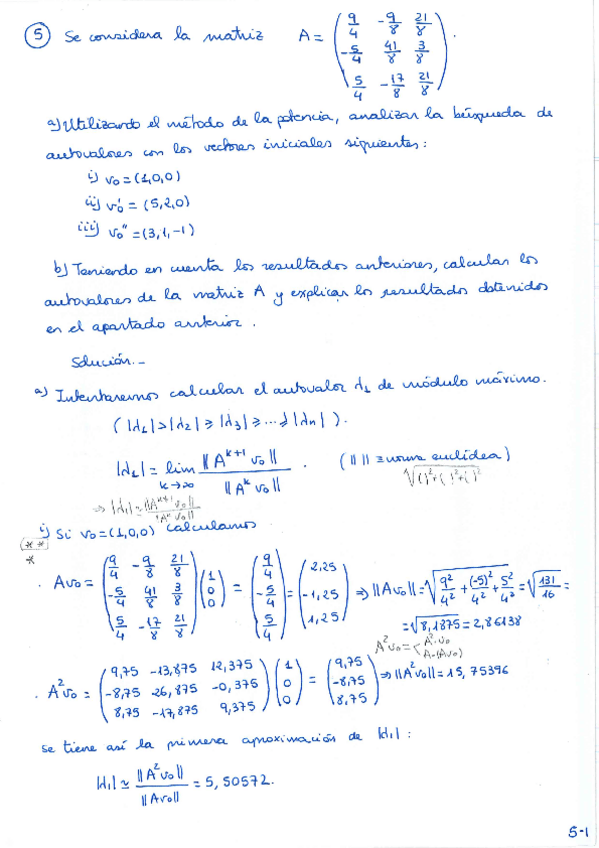 ⑤ Se considera la matriz A = ( 9/4 -9/8 21/8
-5/4 41/8 3/8
5/4 -17/8 21/8 ).
a) Utilizando el método de la potencia, analizar la búsqueda de
autovalores con los vectores iniciales siguientes:
i) v₀ = (1,0,0)
ii) v₀' = (5,2,0)
iii) v₀'' = (3,1,-1)
b) Teniendo en cuenta los resultados anteriores, calcular los
autovalores de la matriz A y explicar los resultados obtenidos
en el apartado anterior.
Solución.-
a) Intentaremos calcular el autovalor λ₁ de módulo máximo.
( |λ₁| > |λ₂| ≥ |λ₃| ≥ ... ≥ |λn| ).
|λ₁| = lim k→∞ ‖A^(k+1) v₀‖ / ‖A^k v₀‖ . (‖ ‖ ≡ norma euclídea)
√( )²+( )²+( )²
⇒ |λ₁| ≃ ‖A^(k+1) v₀‖ / ‖A^k v₀‖
i) Si v₀ = (1,0,0) calculamos
(**)
*
. Av₀ = ( 9/4 -9/8 21/8
-5/4 41/8 3/8
5/4 -17/8 21/8 ) ( 1 0 0 ) = ( 9/4 -5/4 5/4 ) = ( 2,25 -1,25 1,25 ) ⇒ ‖Av₀‖ = √( 9²/4² + (-5)²/4² + 5²/4² ) = √( 131/16 ) =
= √8,1875 = 2,86138
A²v₀ = { A²·v₀
A·(Av₀)
. A²v₀ = ( 9,75 -13,875 12,375
-8,75 26,875 -0,375
8,75 -17,875 9,375 ) ( 1 0 0 ) = ( 9,75 -8,75 8,75 ) ⇒ ‖A²v₀‖ = 15,75396
se tiene así la primera aproximación de |λ₁| :
|λ₁| ≃ ‖A²v₀‖ / ‖Av₀‖ = 5,50572.
5-1